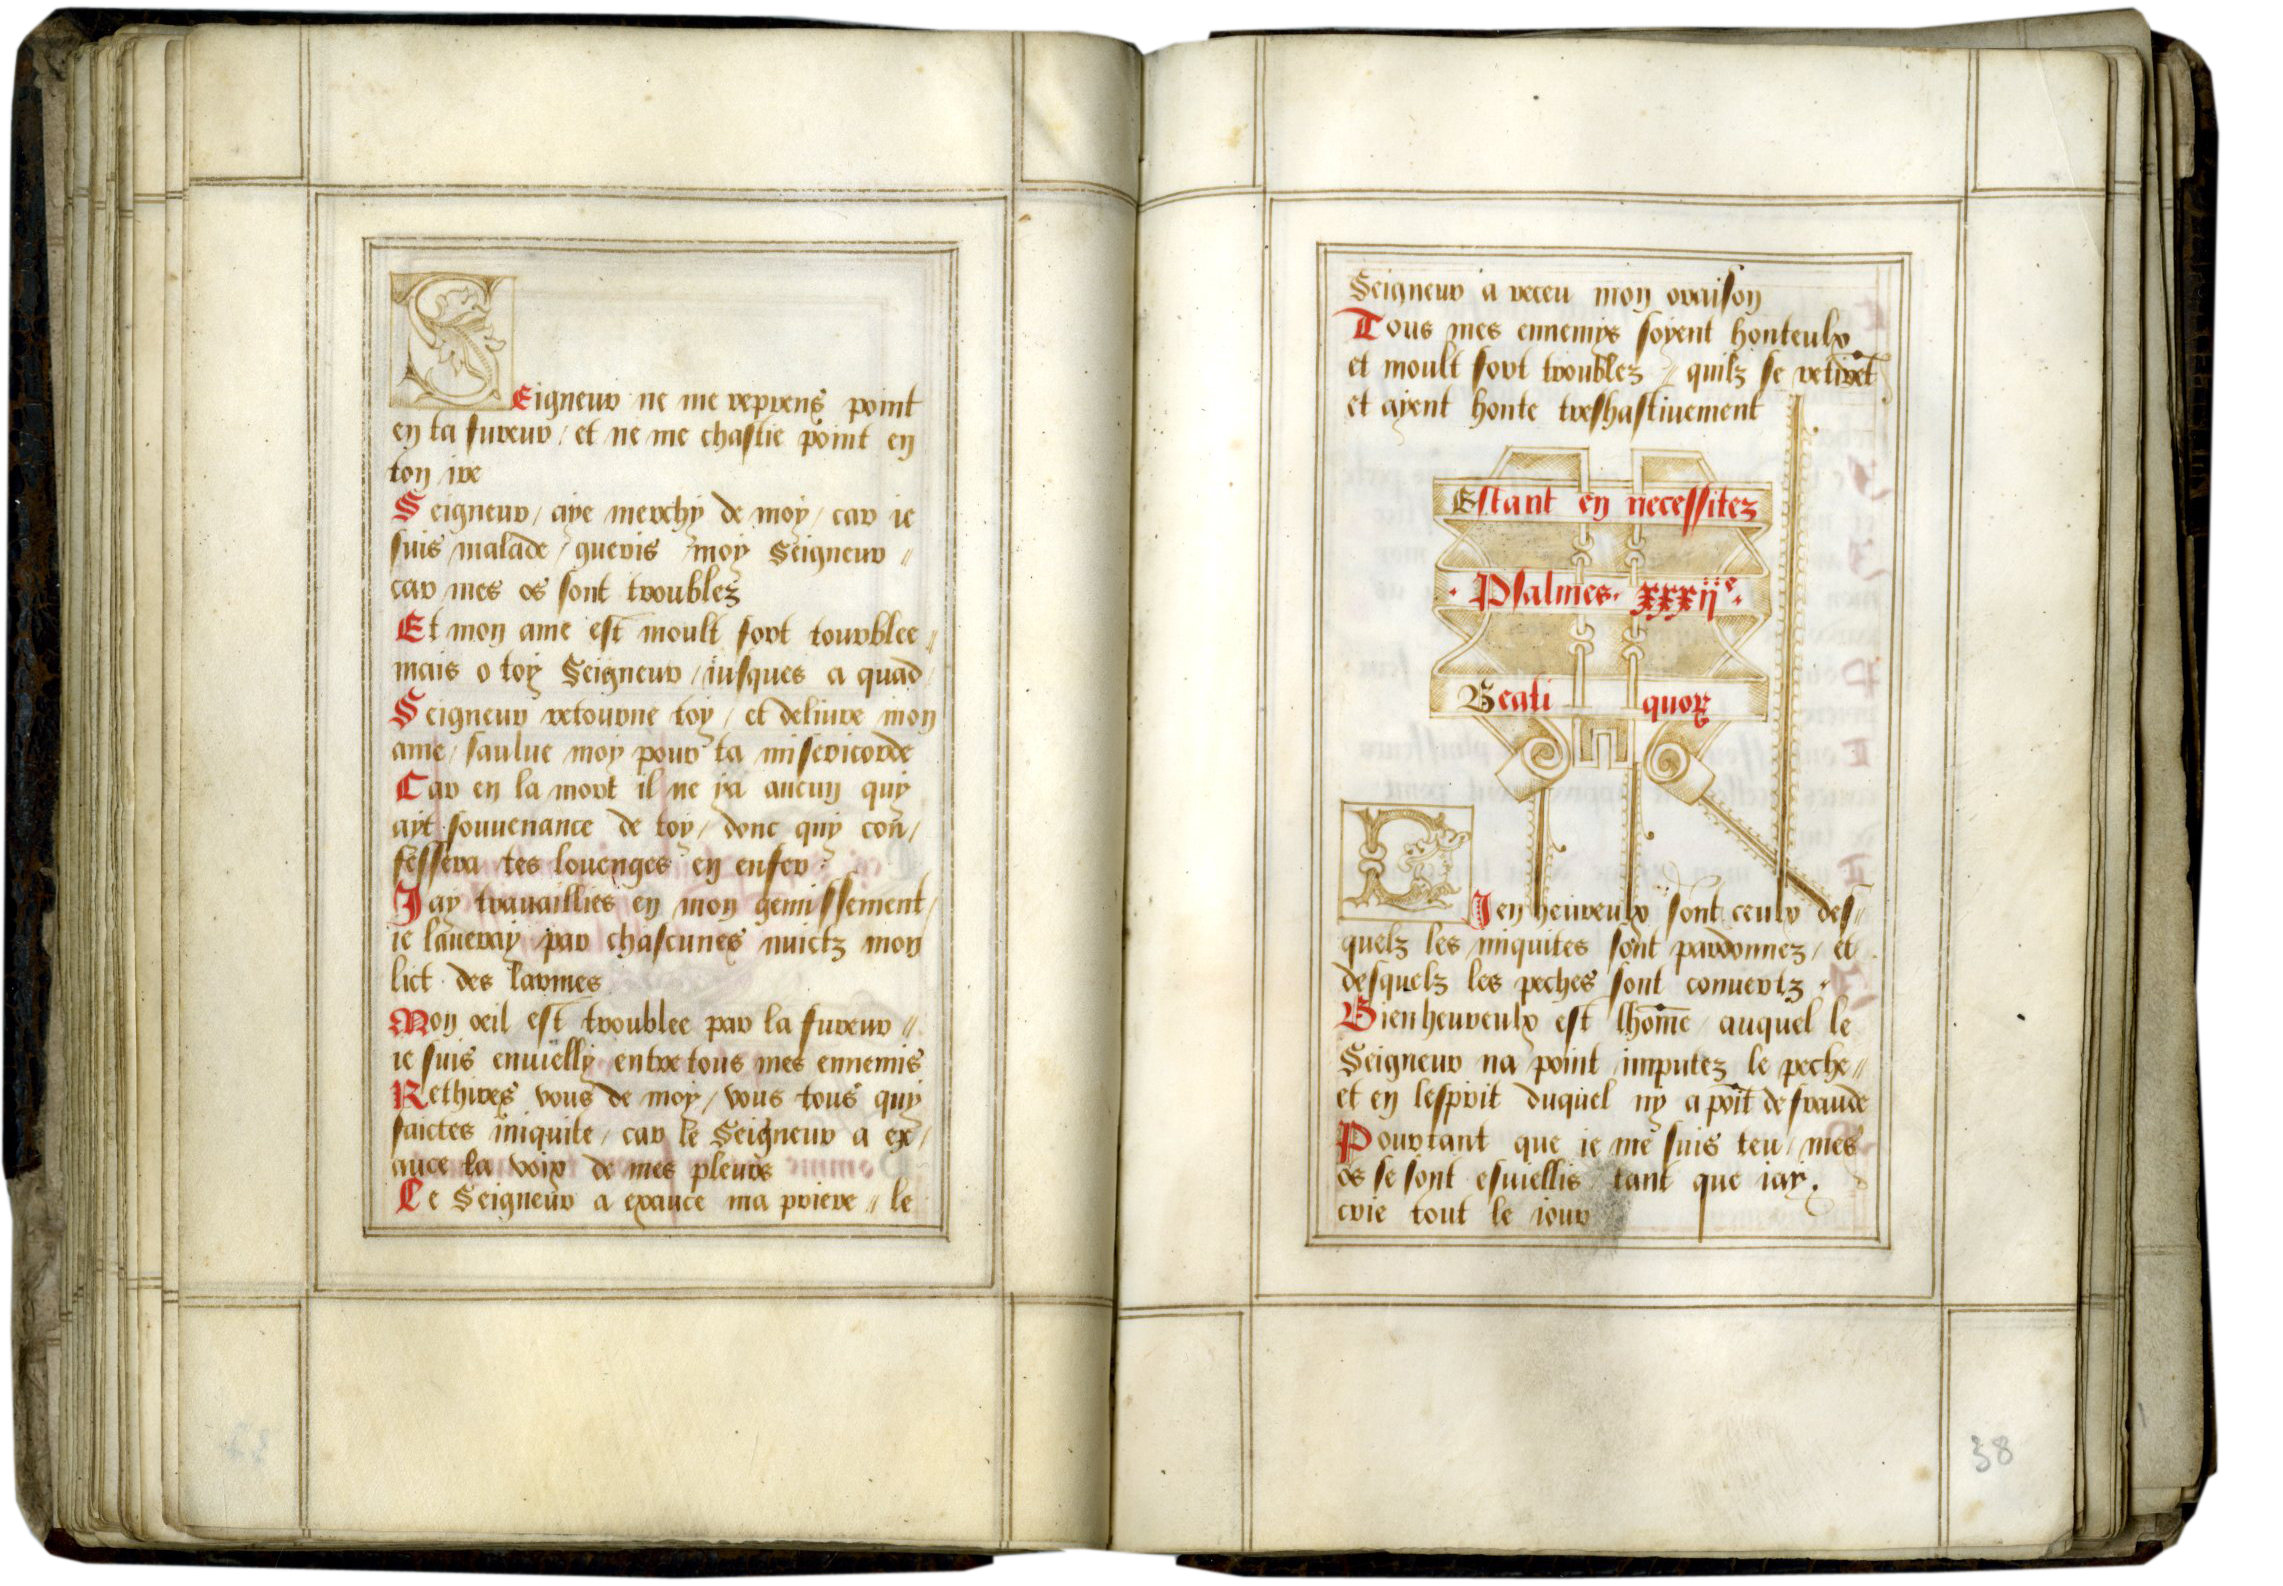 Seigneur ne me reprens point
en ta fureur / et ne me chastie point en
ton ire
Seigneur / aye merchy de moy / car ie
suis malade / gueris moy Seigneur //
car mes os sont troubles
Et mon ame est moult fort tourblee //
mais o toy Seigneur / iusques a quād
Seigneur retourne toy / et deliure mon
ame / saulue moy pour ta misericorde
Car en la mort il ne ya aucun quy
ayt souuenance de toy / donc quy con /
fessera tes louenges en enfer
Jay travaillies en mon gemissement /
ie laueray par chascunes nuictz mon
lict des larmes
Mon oeil est troublee par la fureur //
ie suis enuielly entre tous mes ennemis
Rethires vous de moy / vous tous quy
faictes iniquite / car le Seigneur a ex /
auce la voix de mes pleurs
Le Seigneur a exauce ma priere // le
Seigneur a receu mon oraison
Tous mes ennemys soyent honteulx
et moult fort troublez // quilz se retirēt
et ayent honte treshastiuement
Estant en necessitez
· Psalmes · xxxijᵉ ·
Beati quorꝝ
Bienheureulx sont ceulx des //
quelz les iniquites sont pardonnez / et
desquelz les peches sont conuertz
Bienheureulx est lhom̄e auquel le
Seigneur na point imputez le peche //
et en lesprit duquel ny a poīt de fraude
Pourtant que ie me suis teu / mes
os se sont esuiellis tant que iay
crie tout le iour
38